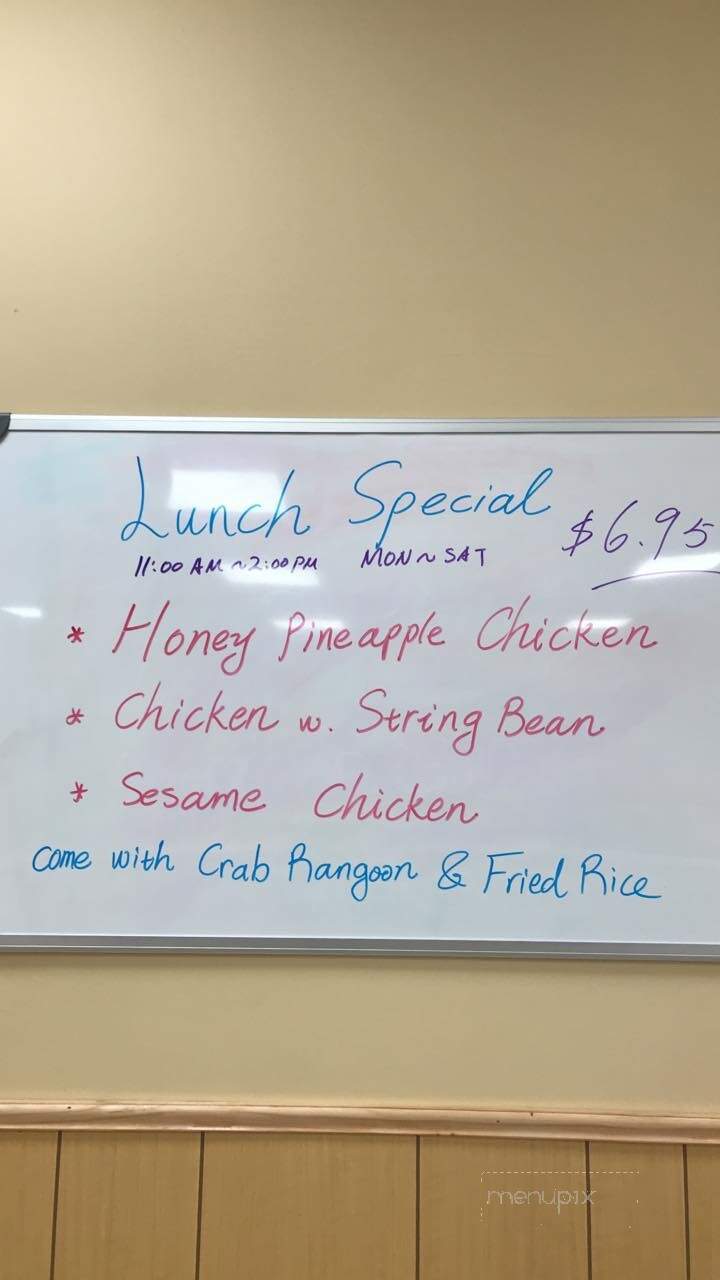 Lunch Special $6.95
11:00 AM ~ 2:00 PM MON ~ SAT
* Honey Pineapple Chicken
* Chicken w. String Bean
* Sesame Chicken
Come with Crab Rangoon & Fried Rice
menupix